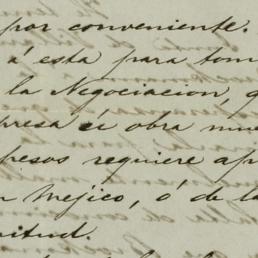 por conveniente.
á esta para tom
la Negociacion, q
presa ú obra nue
pesos requiere apr
n Mejico, ó de la
itud.